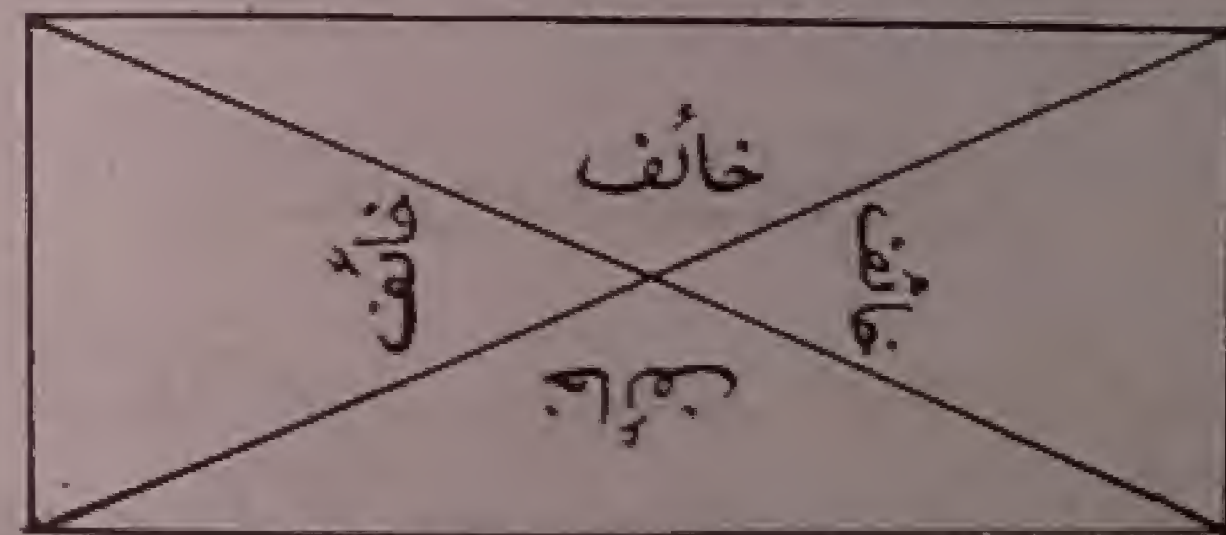 خائف
خائف
خائف
خائف